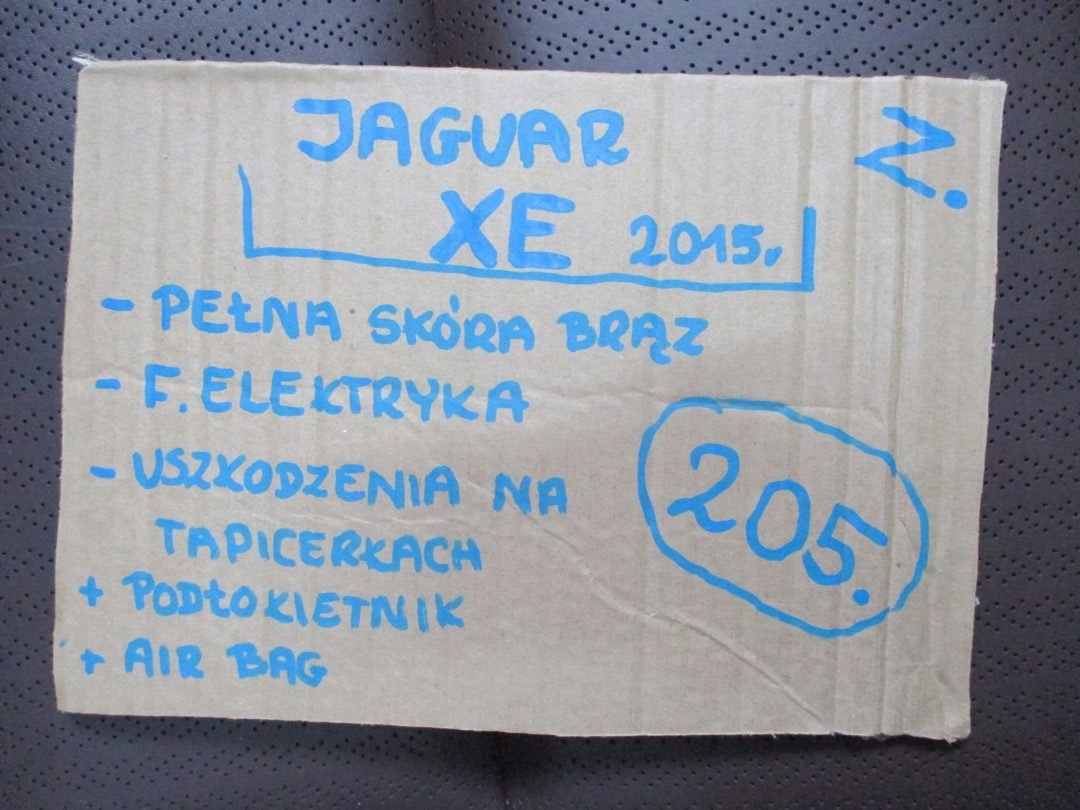 JAGUAR
XE 2015r.
Z.
- PEŁNA SKÓRA BRĄZ
- F. ELEKTRYKA
- USZKODZENIA NA
TAPICERKACH
+ PODŁOKIETNIK
+ AIR BAG
205.